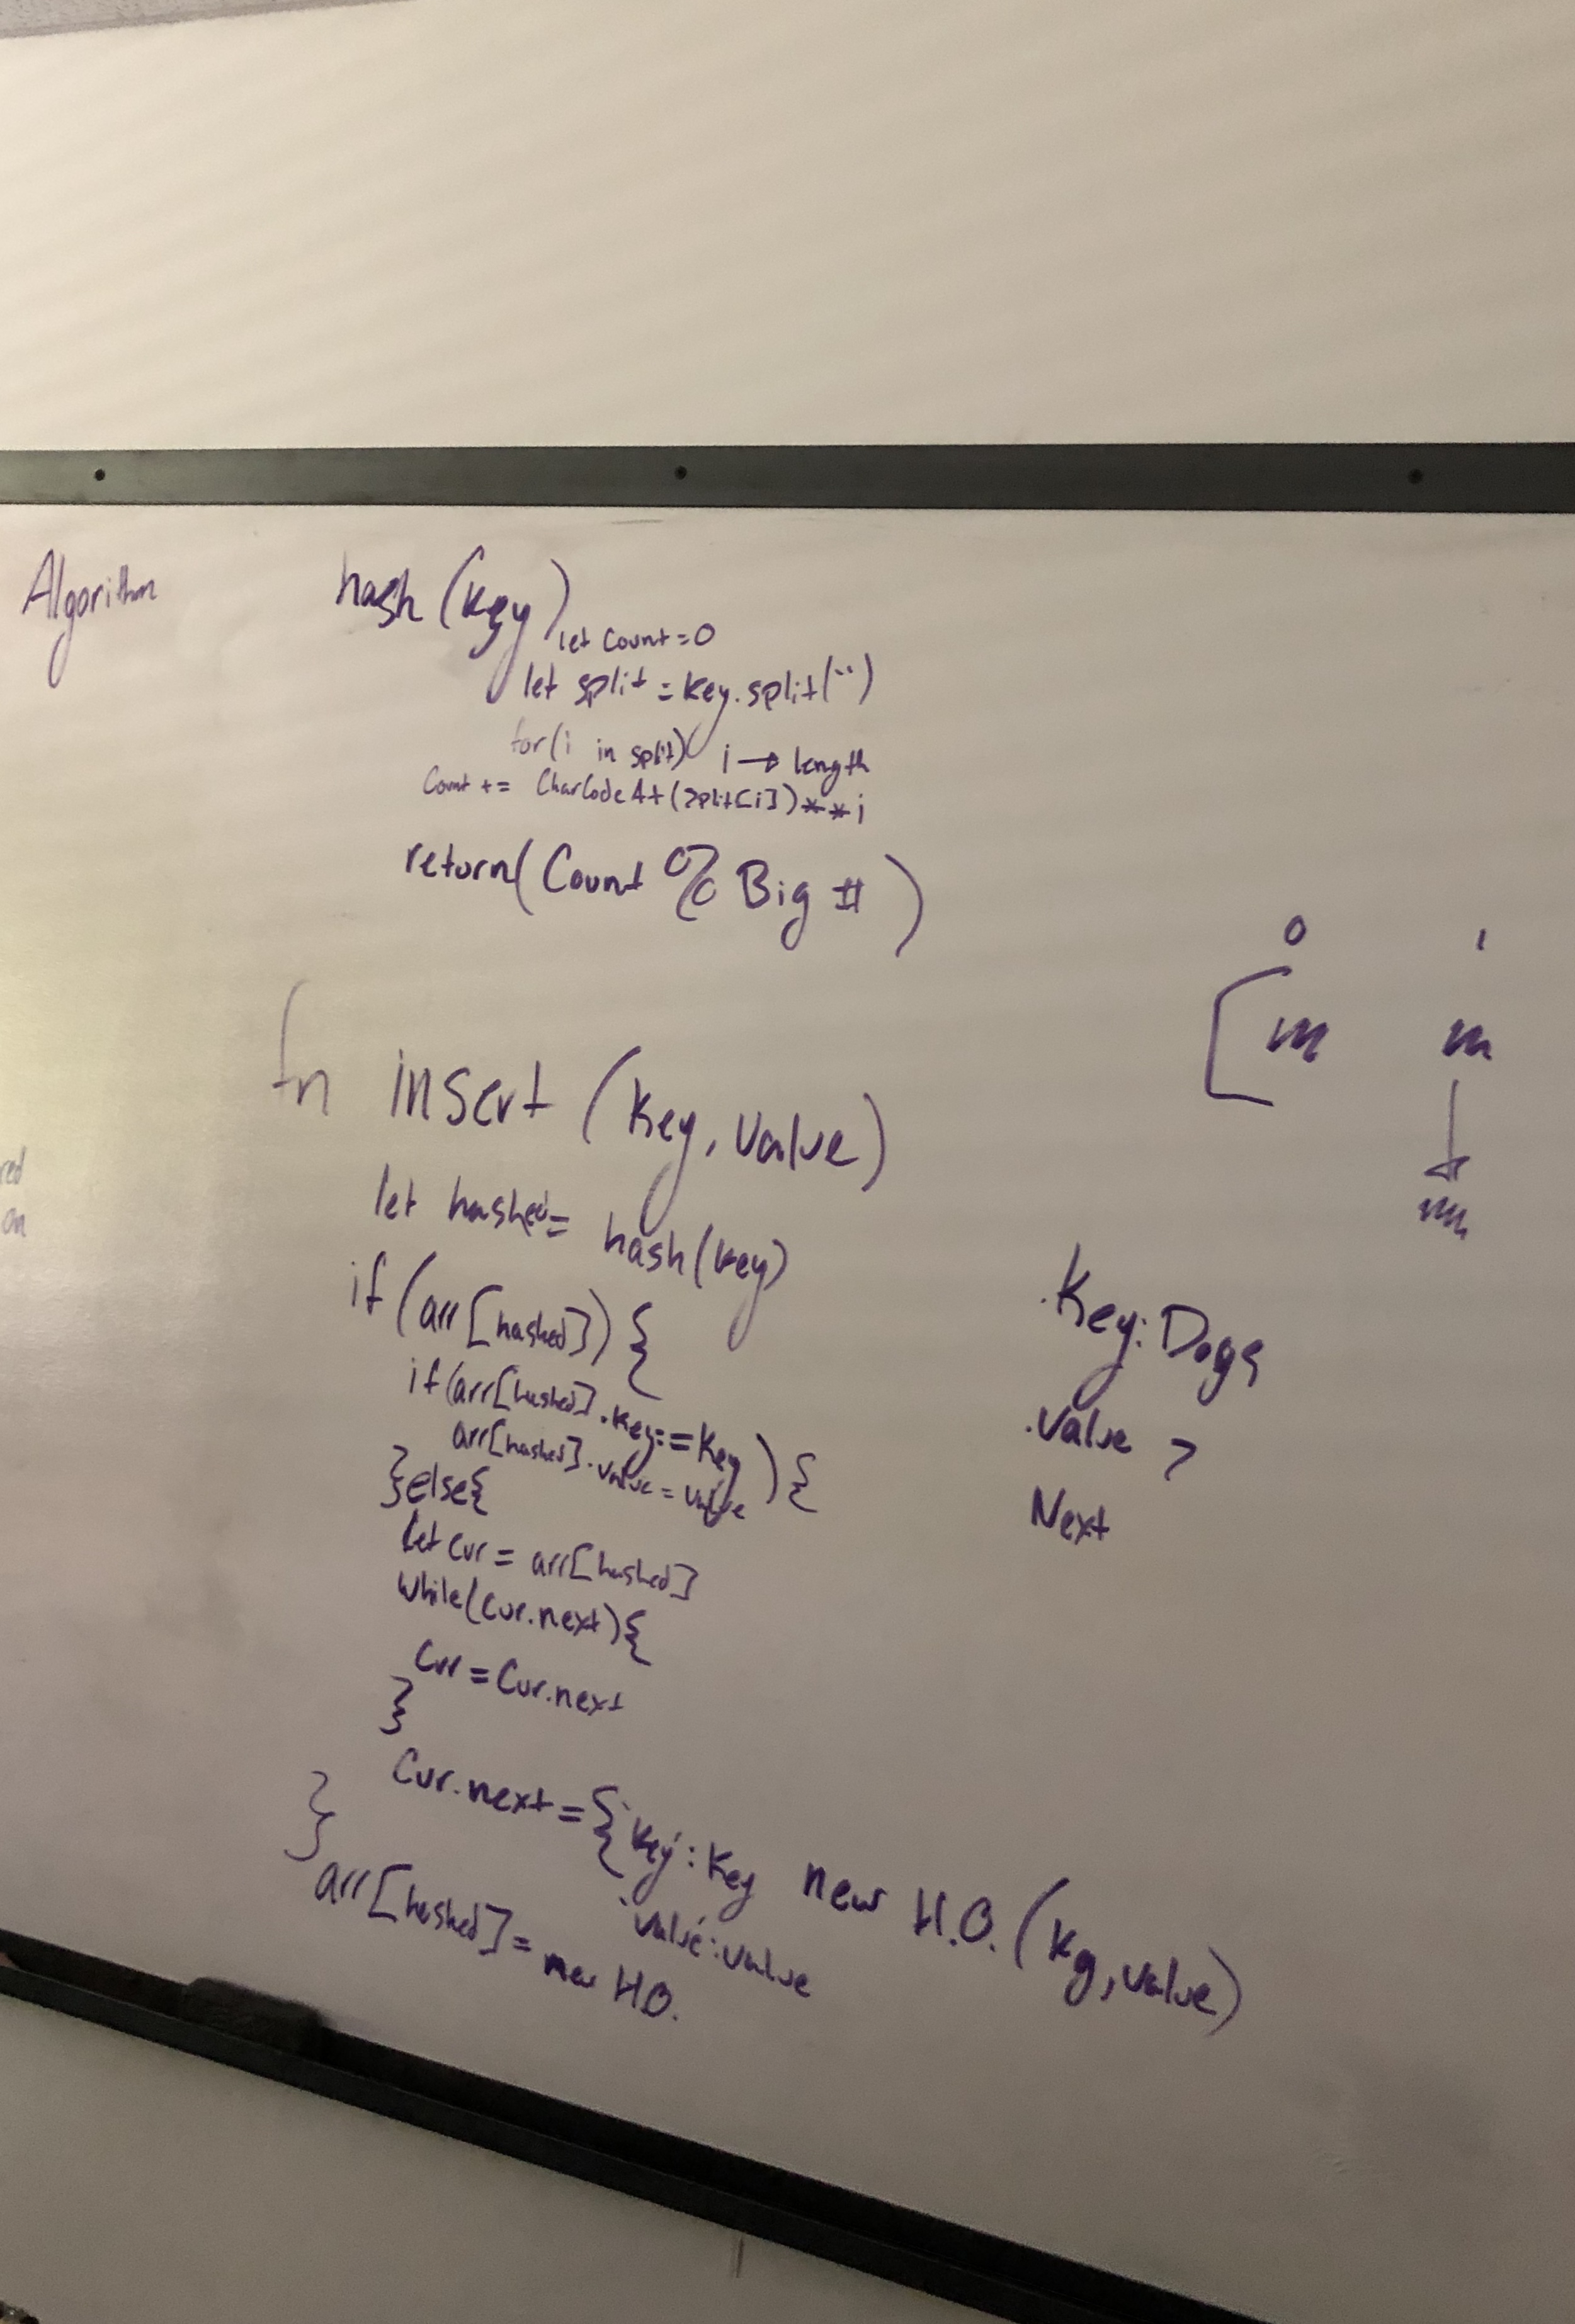 Algorithm
hash (key)
let Count = 0
let split = key.split('')
for(i in split) i → length
Count += CharCodeAt(split[i])**i
return(Count % Big #)
fn insert (key, value)
let hashed = hash(key)
if (arr[hashed]) {
if (arr[hashed].key == key) {
arr[hashed].value = value
} else {
let cur = arr[hashed]
while(cur.next) {
Cur = Cur.next
}
Cur.next = { 'key' : key new H.O. (key, value)
'value' : value
}
arr[hashed] = new H.O.
0 1
[
.Key: Dogs
.Value 7
Next
red
on